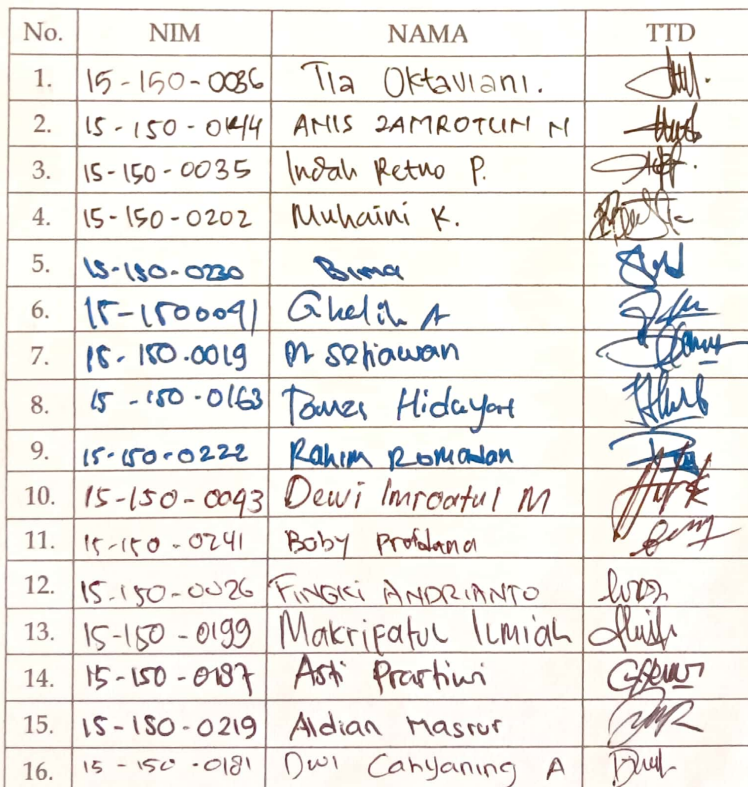 No. NIM NAMA TTD
1. 15-150-0036 Tia Oktaviani.
2. 15-150-0144 ANIS ZAMROTUN N
3. 15-150-0035 Indah Retno P.
4. 15-150-0202 Muhaini K.
5. 15-150-0230 Bima
6. 15-1500091 Ghelih A
7. 15-150-0019 M Setiawan
8. 15-150-0163 Hidayat
9. 15-150-0222 Rahim Romadan
10. 15-150-0093 Dewi Imroatul M
11. 15-150-0241 Boby
12. 15-150-0026 FINGKI ANDRIANTO
13. 15-150-0199 Makrifatul Ilmiah
14. 15-150-0187 Asti Prastiwi
15. 15-150-0219 Aldian Masrur
16. 15-150-0181 Dwi Cahyaning A